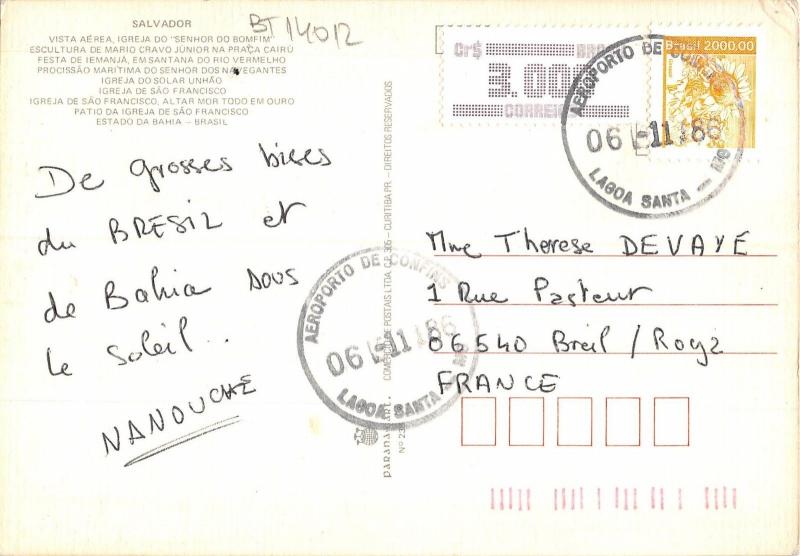 SALVADOR
VISTA AÉREA, IGREJA DO "SENHOR DO BOMFIM"
ESCULTURA DE MARIO CRAVO JÚNIOR NA PRAÇA CAIRÚ
FESTA DE IEMANJÁ, EM SANTANA DO RIO VERMELHO
PROCISSÃO MARÍTIMA DO SENHOR DOS NAVEGANTES
IGREJA DO SOLAR UNHÃO
IGREJA DE SÃO FRANCISCO
IGREJA DE SÃO FRANCISCO, ALTAR MOR TODO EM OURO
PATIO DA IGREJA DE SÃO FRANCISCO
ESTADO DA BAHIA – BRASIL
BT 14012
De grosses bises
du BRESIL et
de Bahia sous
le soleil..
NANOUCHE
PARANA CART. COMÉRCIO DE POSTAIS LTDA. C.P. 305 - CURITIBA PR - DIREITOS RESERVADOS
Nº
Cr$
3.000
CORREIO
Brasil 2000,00
AEROPORTO DE CONFINS
06 11 86
LAGOA SANTA — MG
AEROPORTO DE CONFINS
06 11 86
LAGOA SANTA — MG
Mme Therese DEVAYE
1 Rue Pasteur
06540 Breil / Roya
FRANCE